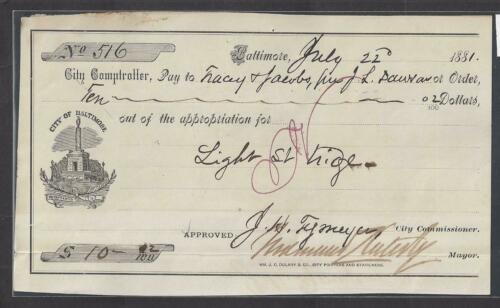 No 516
Baltimore, July 22d 1881.
City Comptroller, Pay to Tracey & Jacobs, pr J. L. Lawson or Order,
Ten 02/100 Dollars,
out of the appropriation for
CITY OF BALTIMORE
Light St
APPROVED J. H. City Commissioner.
Mayor.
$ 10-02/100
WM. J. C. DULANY & CO., CITY PRINTERS AND STATIONERS.